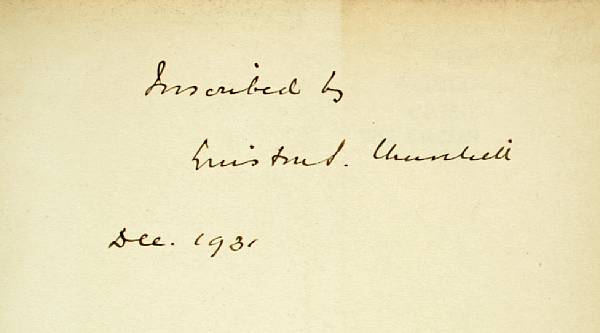 Inscribed by
Winston S. Churchill
Dec. 1931